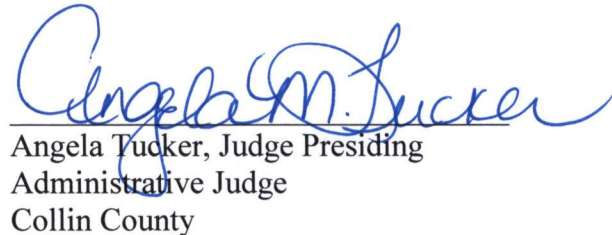 Angela M. Tucker
Angela Tucker, Judge Presiding
Administrative Judge
Collin County